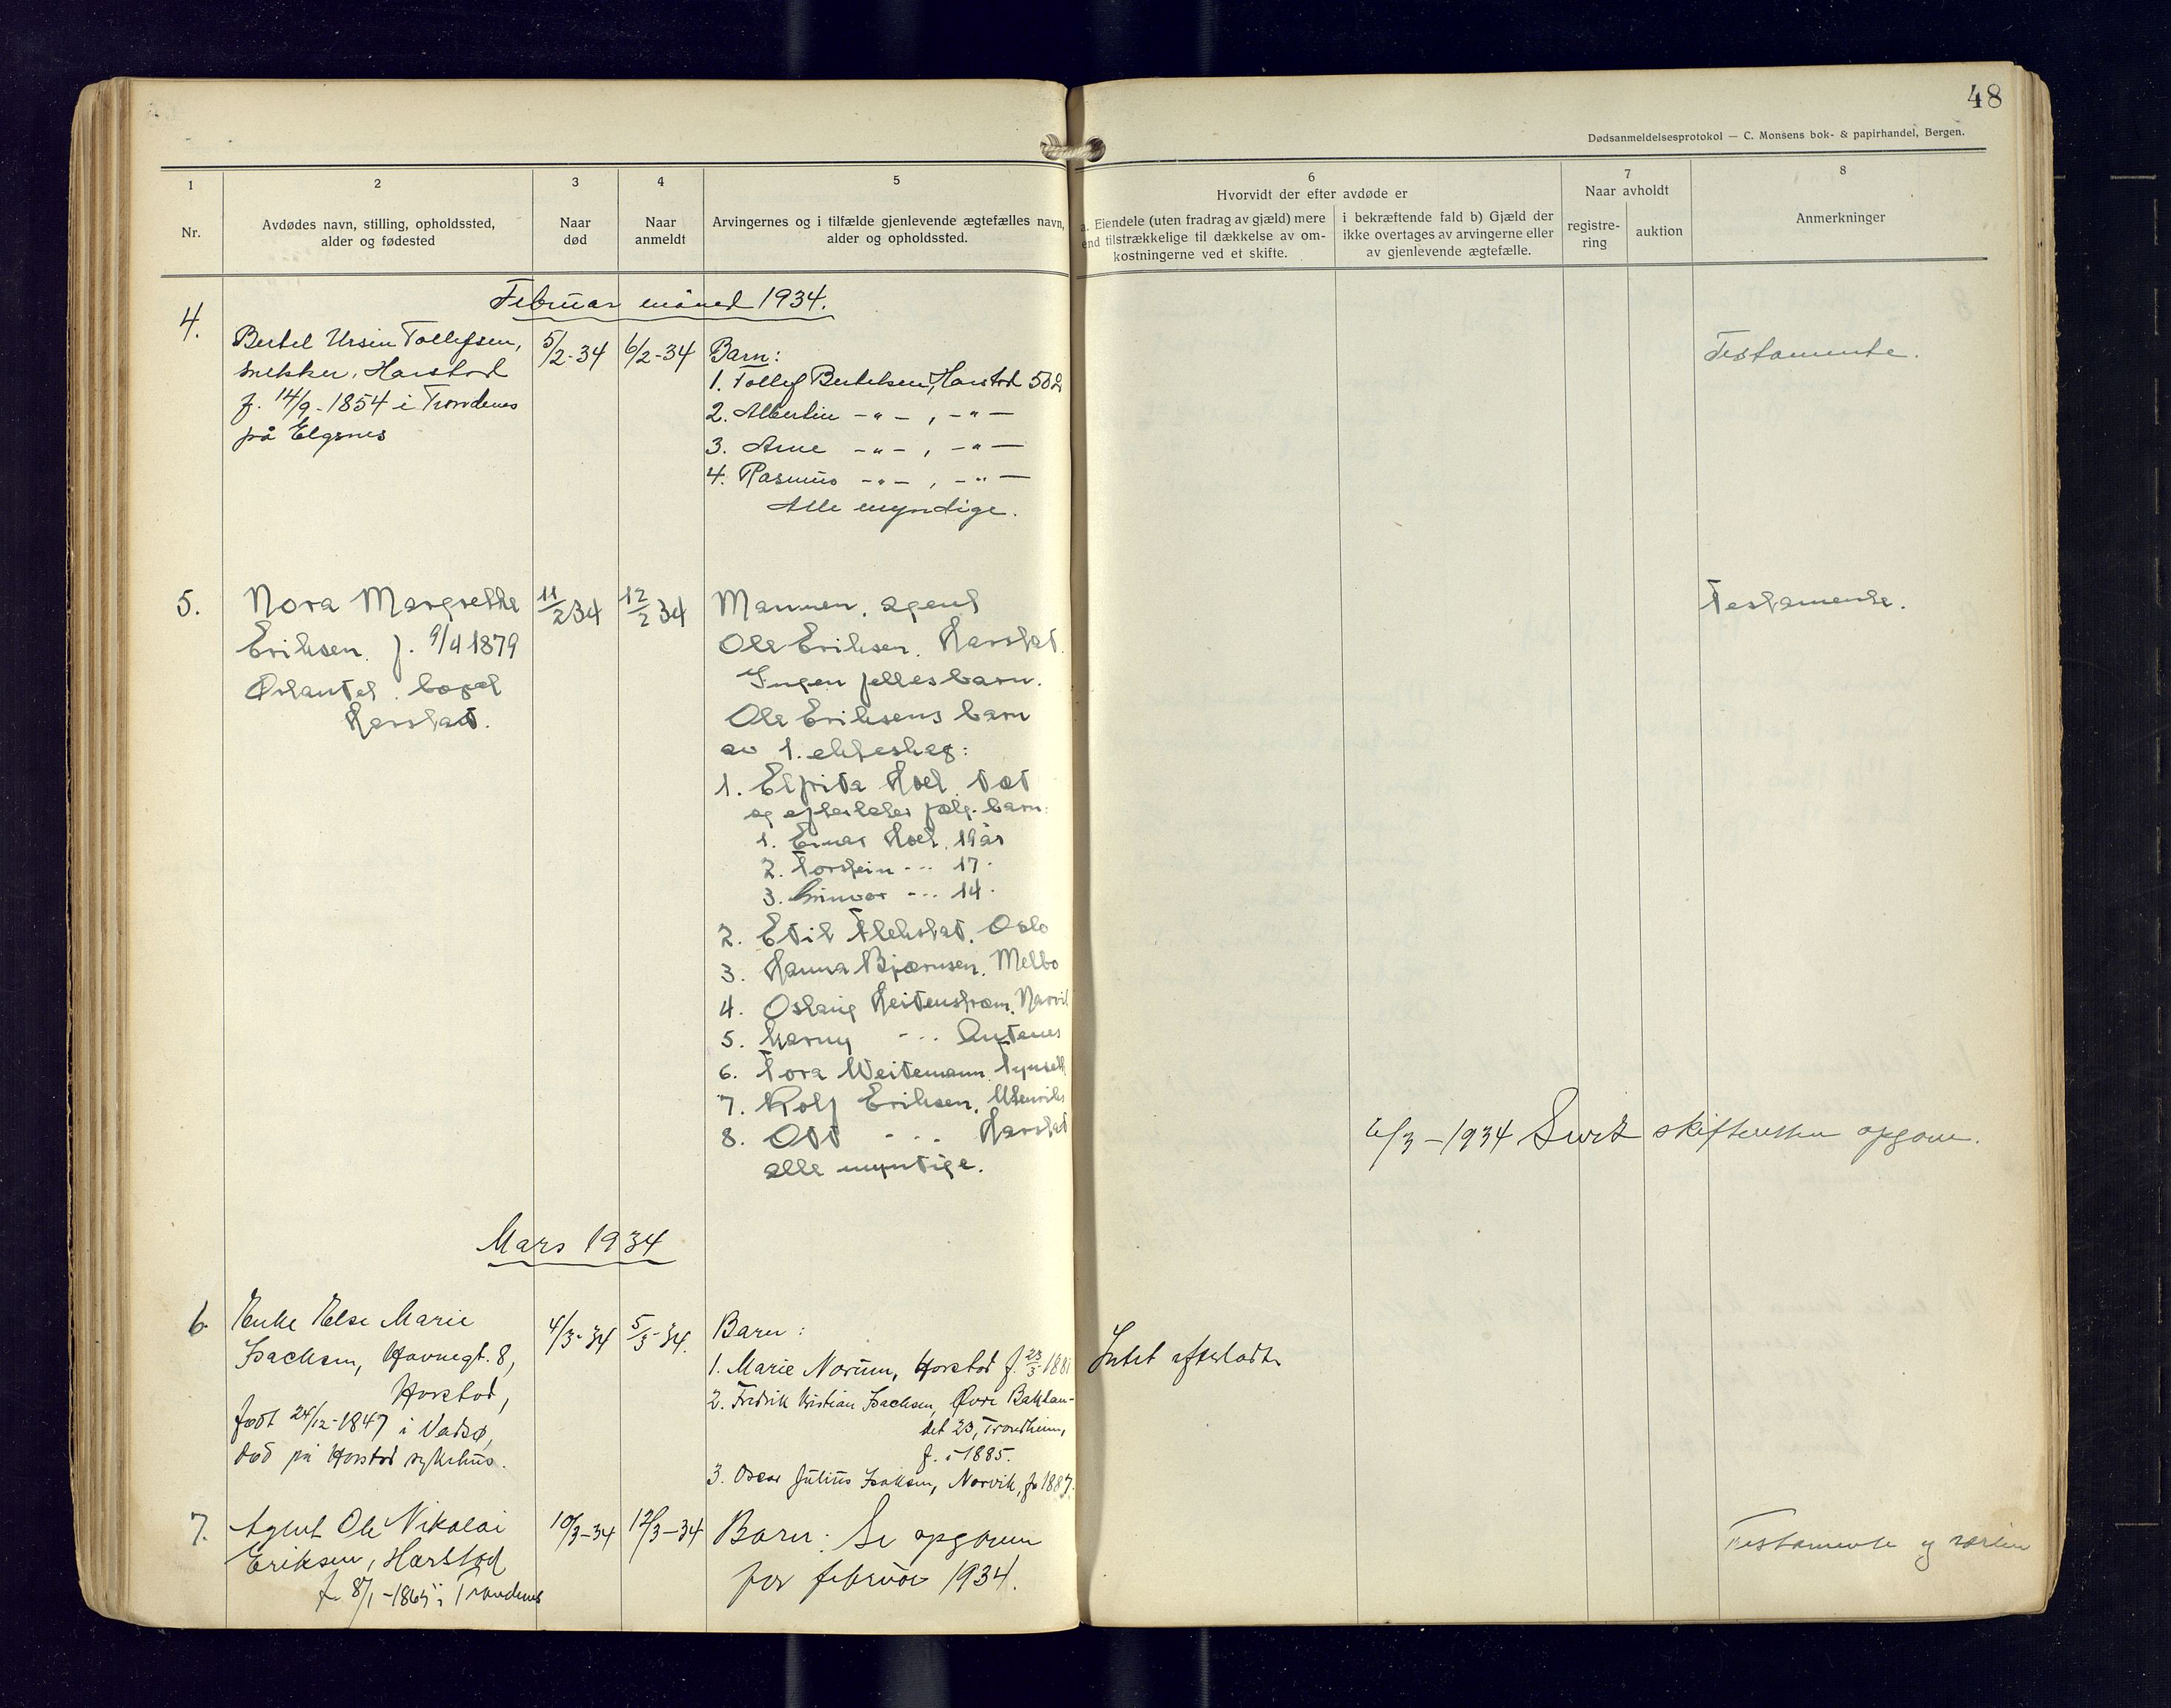 48
Dødsanmeldelsesprotokol — C. Monsens bok- & papirhandel, Bergen.
1
Nr.
2
Avdødes navn, stilling, opholdssted,
alder og fødested
3
Naar
død
4
Naar
anmeldt
5
Arvingernes og i tilfælde gjenlevende ægtefælles navn,
alder og opholdssted.
6
Hvorvidt der efter avdøde er
a. Eiendele (uten fradrag av gjæld) mere
end tilstrækkelige til dækkelse av om-
kostningerne ved et skifte.
i bekræftende fald b) Gjæld der
ikke overtages av arvingerne eller
av gjenlevende ægtefælle.
7
Naar avholdt
registre-
ring
auktion
8
Anmerkninger
Februar måned 1934.
4.
Bertel Ursin Tollefsen,
snekker, Harstad
f. 14/9-1854 i Trondenes
på Elgsnes
5/2-34
6/2-34
Barn:
1. Tollef Bertelsen, Harstad 50 år
2. Albertin -"-, -"-
3. Arne -"-, -"-
4. Rasmus -"-, -"-
Alle myndige.
Testamente.
5.
Nora Margrethe
Eriksen f. 9/4 1879
bopæl
Harstad.
11/2 34
12/2 34
Mannen, agent
Ole Eriksen, Harstad.
Ingen fellesbarn.
Ole Eriksens barn
av 1. ekteskap:
1. Elfrida Hoel, død
og efterlater følg. barn:
1. Einar Hoel, 19 år
2. Torstein -"- 17 "
3. Gunvor -"- 14 "
2. Edil Flekstad, Oslo
3. Hanna Bjørnsen, Melbo
4. Oslaug Heitenstrøm, Narvik
5. -"- Andenes
6. Tora Weidemann, Tynset
7. Rolf Eriksen,
8. Odd -"- Harstad
alle myndige.
Testamente.
6/3-1934 Sivert skifteretten opgave.
Mars 1934
6
Enke Else Marie
Isachsen, Havnegt. 8,
Harstad,
født 24/12-1847 i Vadsø,
død på Harstad sykehus.
4/3-34
5/3-34.
Barn:
1. Marie Norum, Harstad f. 23/3-188
2. Fredrik Kristian Isachsen, Øvre Baklan-
det 23, Trondheim,
f. i 1885.
3. Oscar Julius Isaksen, Narvik, f. 1887.
Intet efterladt.
7.
Agent Ole Nikolai
Eriksen, Harstad
f. 8/1-1865 i Trondenes
10/3-34
12/3-34
Barn: Se opgaven
for februar 1934.
Testamente og